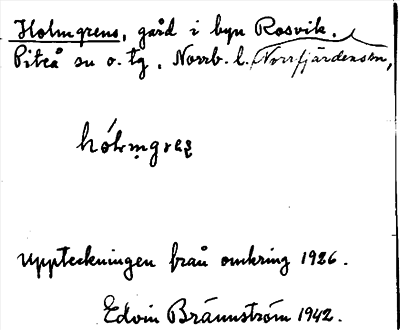 Holmgrens, gård i byn Rosvik.
Piteå sn o. tg, Norrb. l. Norrfjärdens sn,
hólmgre
Uppteckningen från omkring 1926.
Edvin Brännström 1942.